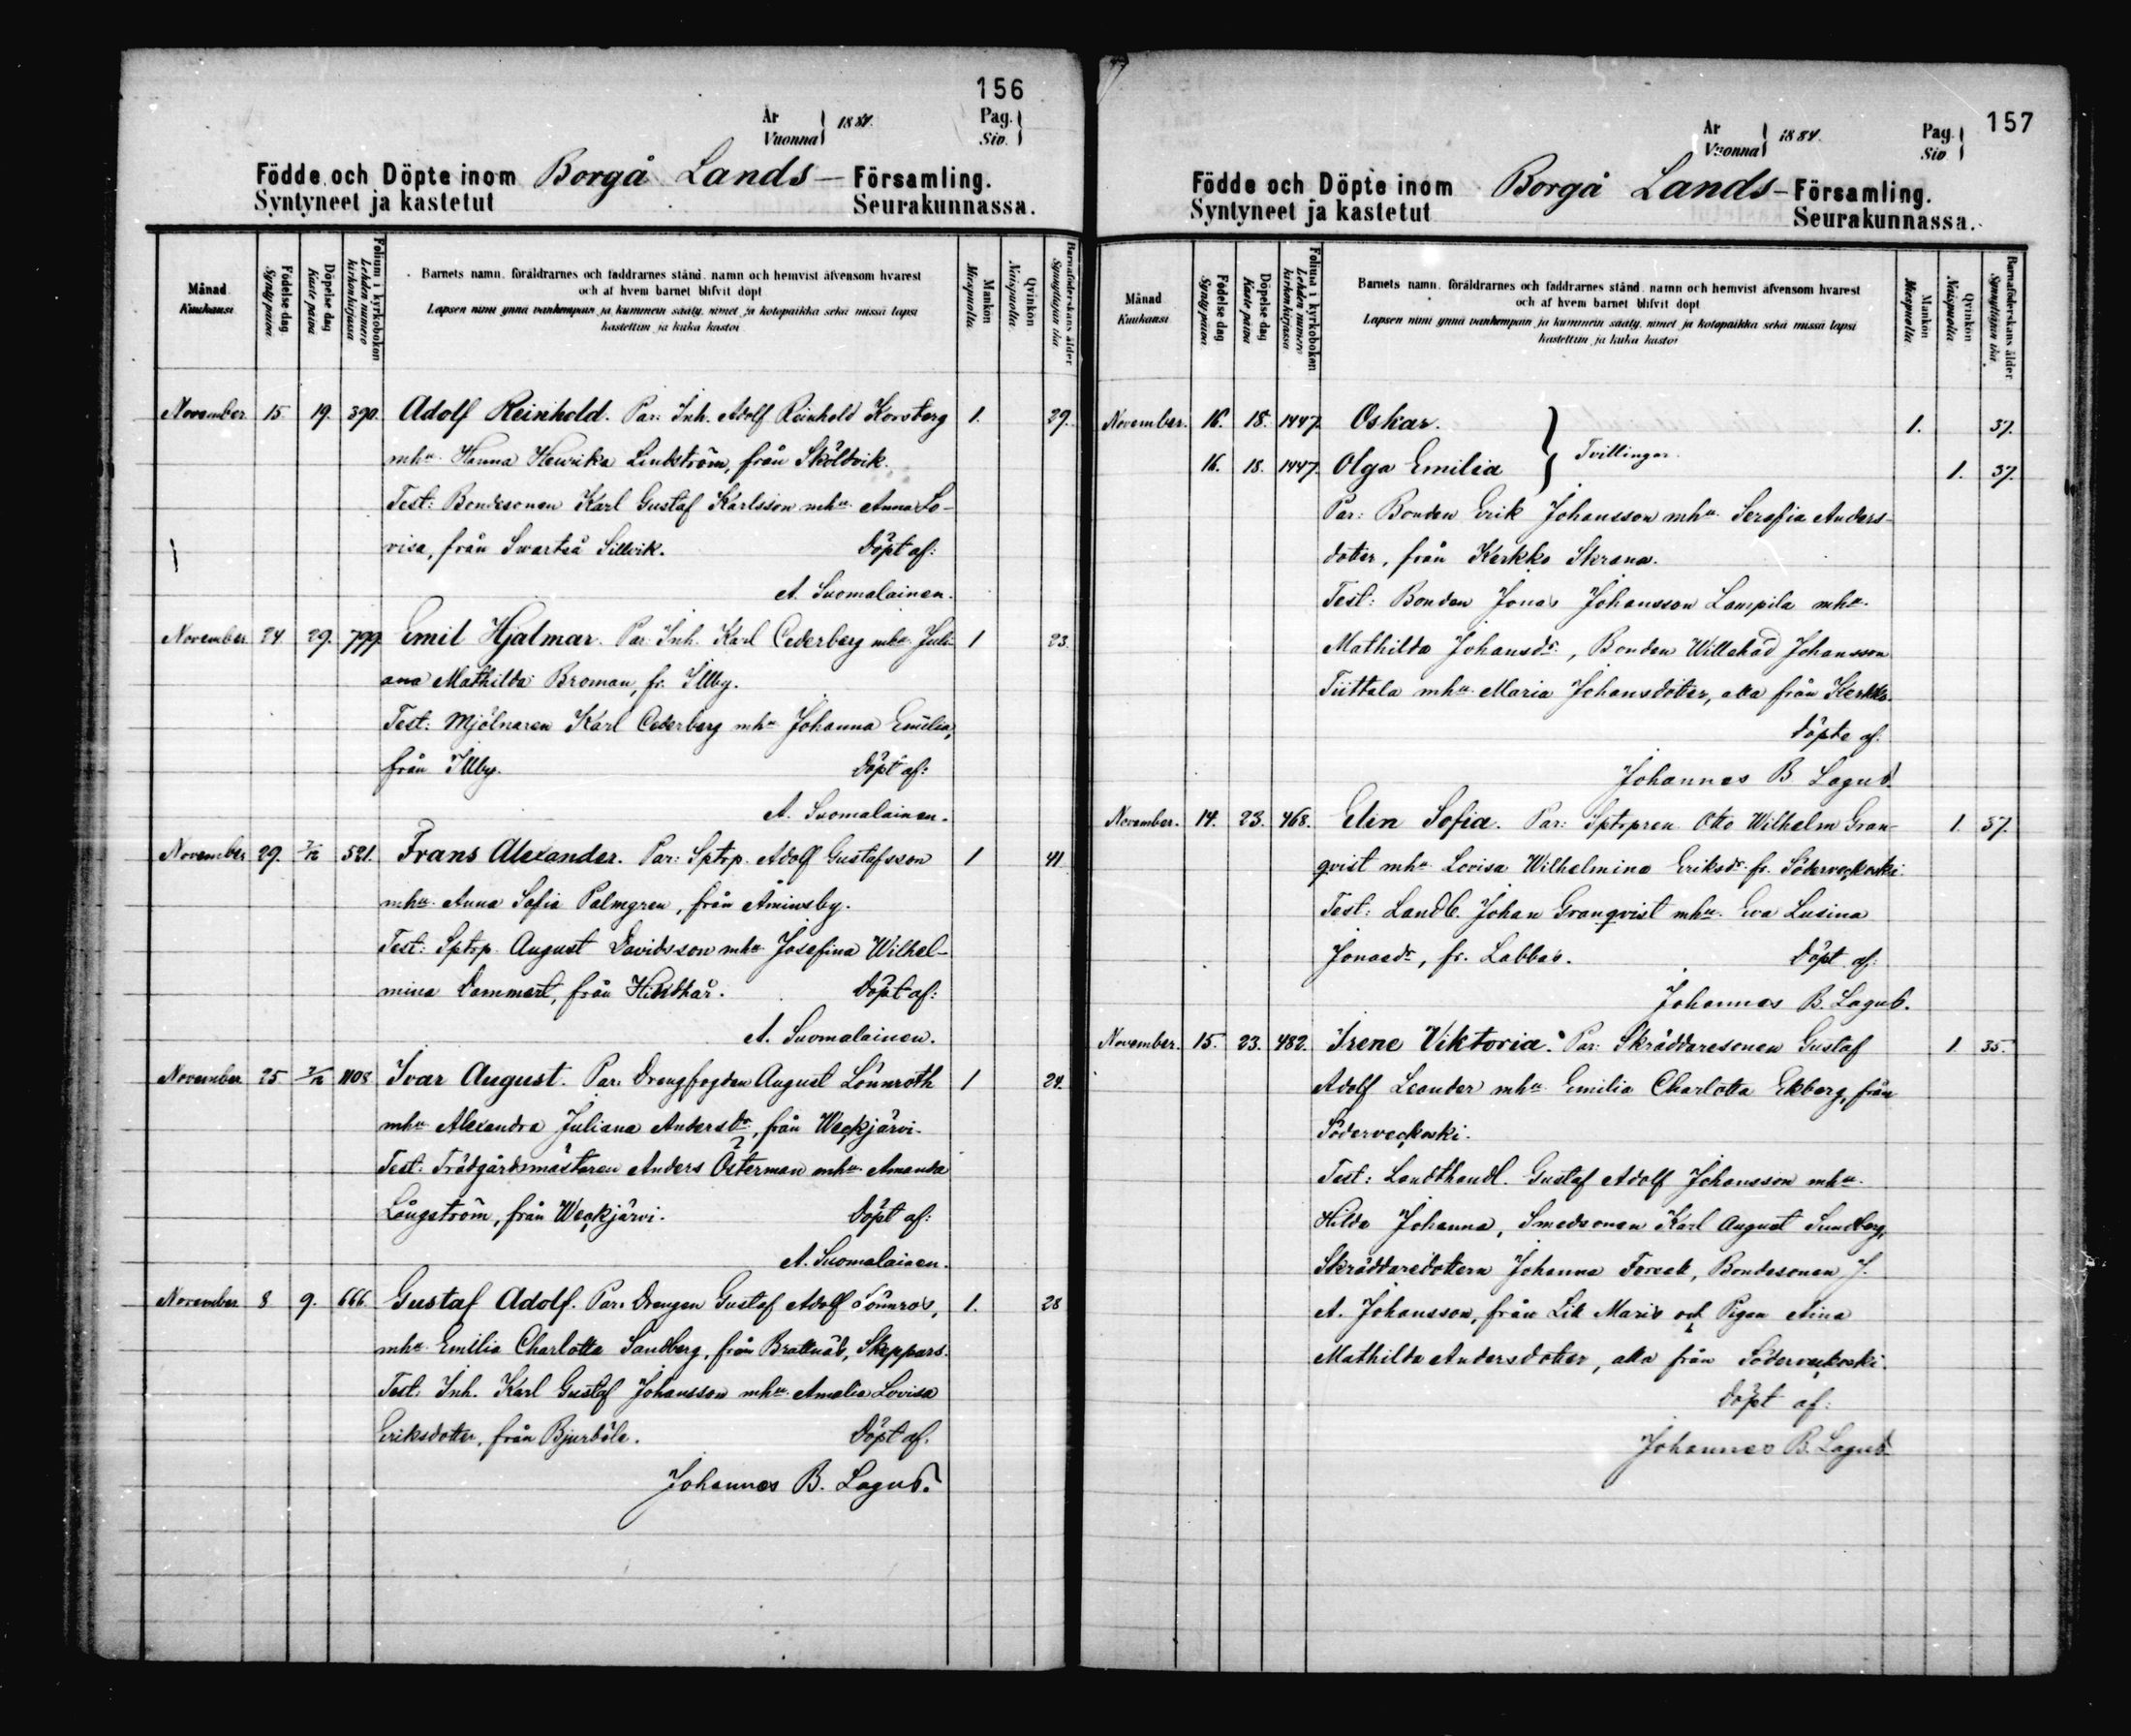 156
År
Vuonna } 1884.
Pag.
Siv.
Födde och Döpte inom Borgå Lands- Församling.
Syntyneet ja kastetut Seurakunnassa.
Månad
Kuukausi
Födelse dag
Synty päivä
Döpelse dag
Kaste päivä
Folium i kyrkoboken
Lehden numero kirkonkirjassa
Barnets namn, föräldrarnes och faddrarnes stånd, namn och hemvist äfvensom hvarest
och af hvem barnet blifvit döpt
Lapsen nimi ynnä vanhempain ja kummein sääty, nimet ja kotopaikka sekä missä lapsi
kastettiin ja kuka kastoi
Mankön
Miespuolta
Qvinkön
Naispuolta
Barnaföderskans ålder
Synnyttäjän ikä
November 15 19. 390. Adolf Reinhold. Par: Inh. Adolf Reinhold Korsberg 1. 29.
mhu Hanna Henrika Lindström, från Sköldvik.
Test: Bondesonen Karl Gustaf Karlsson mhu Anna Lo-
visa, från Svarteå Sillvik. Döpt af:
A. Suomalainen.
November 24 29. 799. Emil Hjalmar. Par: Inh. Karl Cederberg mhu Juli- 1 23.
ana Mathilda Broman, fr. Illby.
Test: Mjölnaren Karl Cederberg mhu Johanna Emilia,
från Illby. Döpt af:
A. Suomalainen.
November 29. 7/12 521. Frans Alexander. Par: Sptrp. Adolf Gustafsson 1 41
mhu Anna Sofia Palmgren, från Åminsby.
Test: Sptrp. August Davidsson mhu Josefina Wilhel-
mina Dammert, från Hindhår. Döpt af:
A. Suomalainen.
November 25 7/12 1108 Ivar August. Par: Drengfogden August Lönnroth 1 24.
mhu Alexandra Juliana Andersdr, från Weckjärvi.
Test: Trädgårdsmästaren Anders Österman mhu Amanda
Långström, från Weckjärvi. Döpt af:
A. Suomalainen.
November 8 9. 666. Gustaf Adolf. Par: Drengen Gustaf Adolf Lönnros, 1. 28
mhu Emilia Charlotta Sandberg, från Brattnäs, Skeppars.
Test: Inh. Karl Gustaf Johansson mhu Amalia Lovisa
Eriksdotter, från Bjurböle. Döpt af.
Johannes B. Lagus.
157
År
Vuonna } 1884.
Pag.
Siv
Födde och Döpte inom Borgå Lands- Församling.
Syntyneet ja kastetut Seurakunnassa.
Månad
Kuukausi
Födelse dag
Synty päivä
Döpelse dag
Kaste päivä
Folium i kyrkoboken
Lehden numero kirkonkirjassa
Barnets namn, föräldrarnes och faddrarnes stånd, namn och hemvist äfvensom hvarest
och af hvem barnet blifvit döpt
Lapsen nimi ynnä vanhempain ja kummein sääty, nimet ja kotopaikka sekä missä lapsi
kastettiin ja kuka kastoi
Mankön
Miespuolta
Qvinkön
Naispuolta
Barnaföderskans ålder
Synnyttäjän ikä
November. 16. 18. 1447. Oskar. 1. 37.
16. 18. 1447. Olga Emilia } Tvillingar. 1. 37.
Par: Bonden Erik Johansson mhu Serafia Anders-
dotter, från Kerkko Skrana.
Test: Bonden Jonas Johansson Lampila mhu
Mathilda Johansdr, Bonden Willehad Johansson
Tiittala mhu Maria Johansdotter, alla från Kerkko.
Döpte af:
Johannes B. Lagus.
November. 14. 23. 468. Elin Sofia. Par: Sptrpren Otto Wilhelm Gran- 1. 37.
qvist mhu Lovisa Wilhelmina Eriksdr. fr. Söderveckoski.
Test: Landb. Johan Granqvist mhu Eva Lusina
Jonasdr, fr. Labbas. Döpt af:
Johannes B. Lagus.
November. 15. 23. 482. Irene Viktoria. Par: Skräddaresonen Gustaf 1 35.
Adolf Leander mhu Emilia Charlotta Ekberg, från
Söderveckoski.
Test: Landthandl. Gustaf Adolf Johansson mhu
Hilda Johanna, Smedsonen Karl August Sundberg,
Skräddaredottern Johanna, Bondesonen J.
A. Johansson, från Lill Maris och Pigan Aina
Mathilda Andersdotter, alla från Söderveckoski.
Döpt af:
Johannes B. Lagus.